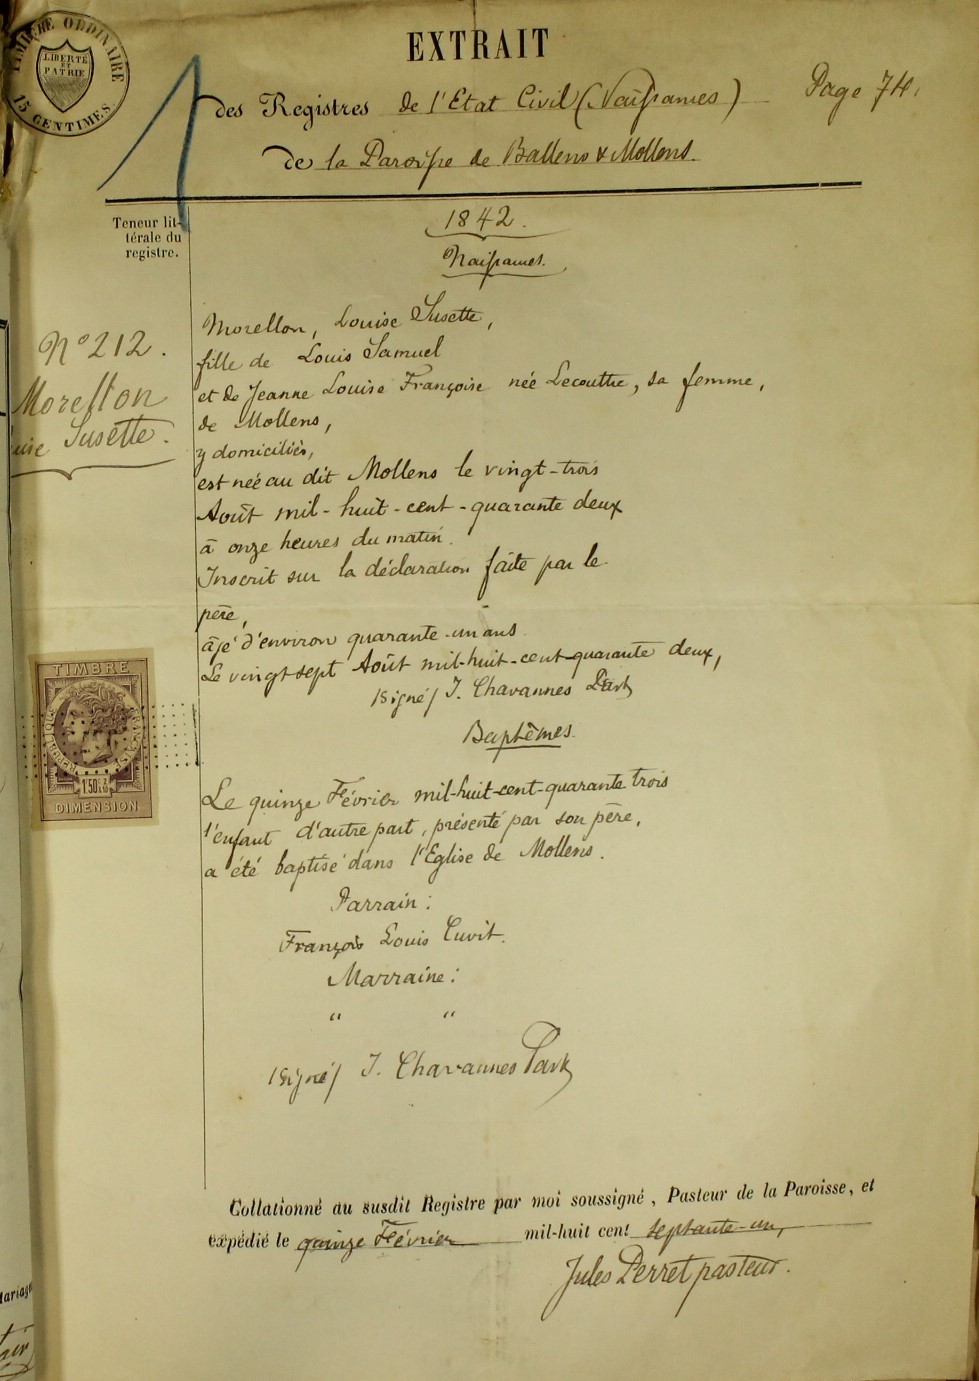 TIMBRE ORDINAIRE
LIBERTÉ
ET
PATRIE
15 CENTIMES
EXTRAIT
des Registres de l'Etat Civil (Naissances) Page 74.
de la Paroisse de Ballens & Mollens.
Teneur lit-
térale du
registre.
1842.
Naissances.
N° 212.
Morellon
Susette.
Morellon, Louise Susette,
fille de Louis Samuel
et de Jeanne Louise Françoise née Lecoultre, sa femme,
de Mollens,
y domiciliés,
est née au dit Mollens le vingt-trois
Août mil-huit-cent-quarante deux
à onze heures du matin.
Inscrit sur la déclaration faite par le
père,
âgé d'environ quarante-un ans
Le vingt sept Août mil-huit-cent-quarante deux,
(Signé) J. Chavannes Past
Baptêmes.
Le quinze Février mil-huit-cent-quarante trois
l'enfant d'autre part, présenté par son père,
a été baptisé dans l'Eglise de Mollens.
Parrain :
François Louis
Marraine :
" "
(Signé) J. Chavannes Past
TIMBRE
REPUBLIQUE FRANÇAISE
DIMENSION
Collationné au susdit Registre par moi soussigné, Pasteur de la Paroisse, et
expédié le quinze Février mil-huit cent septante-un,
Jules Perret pasteur.